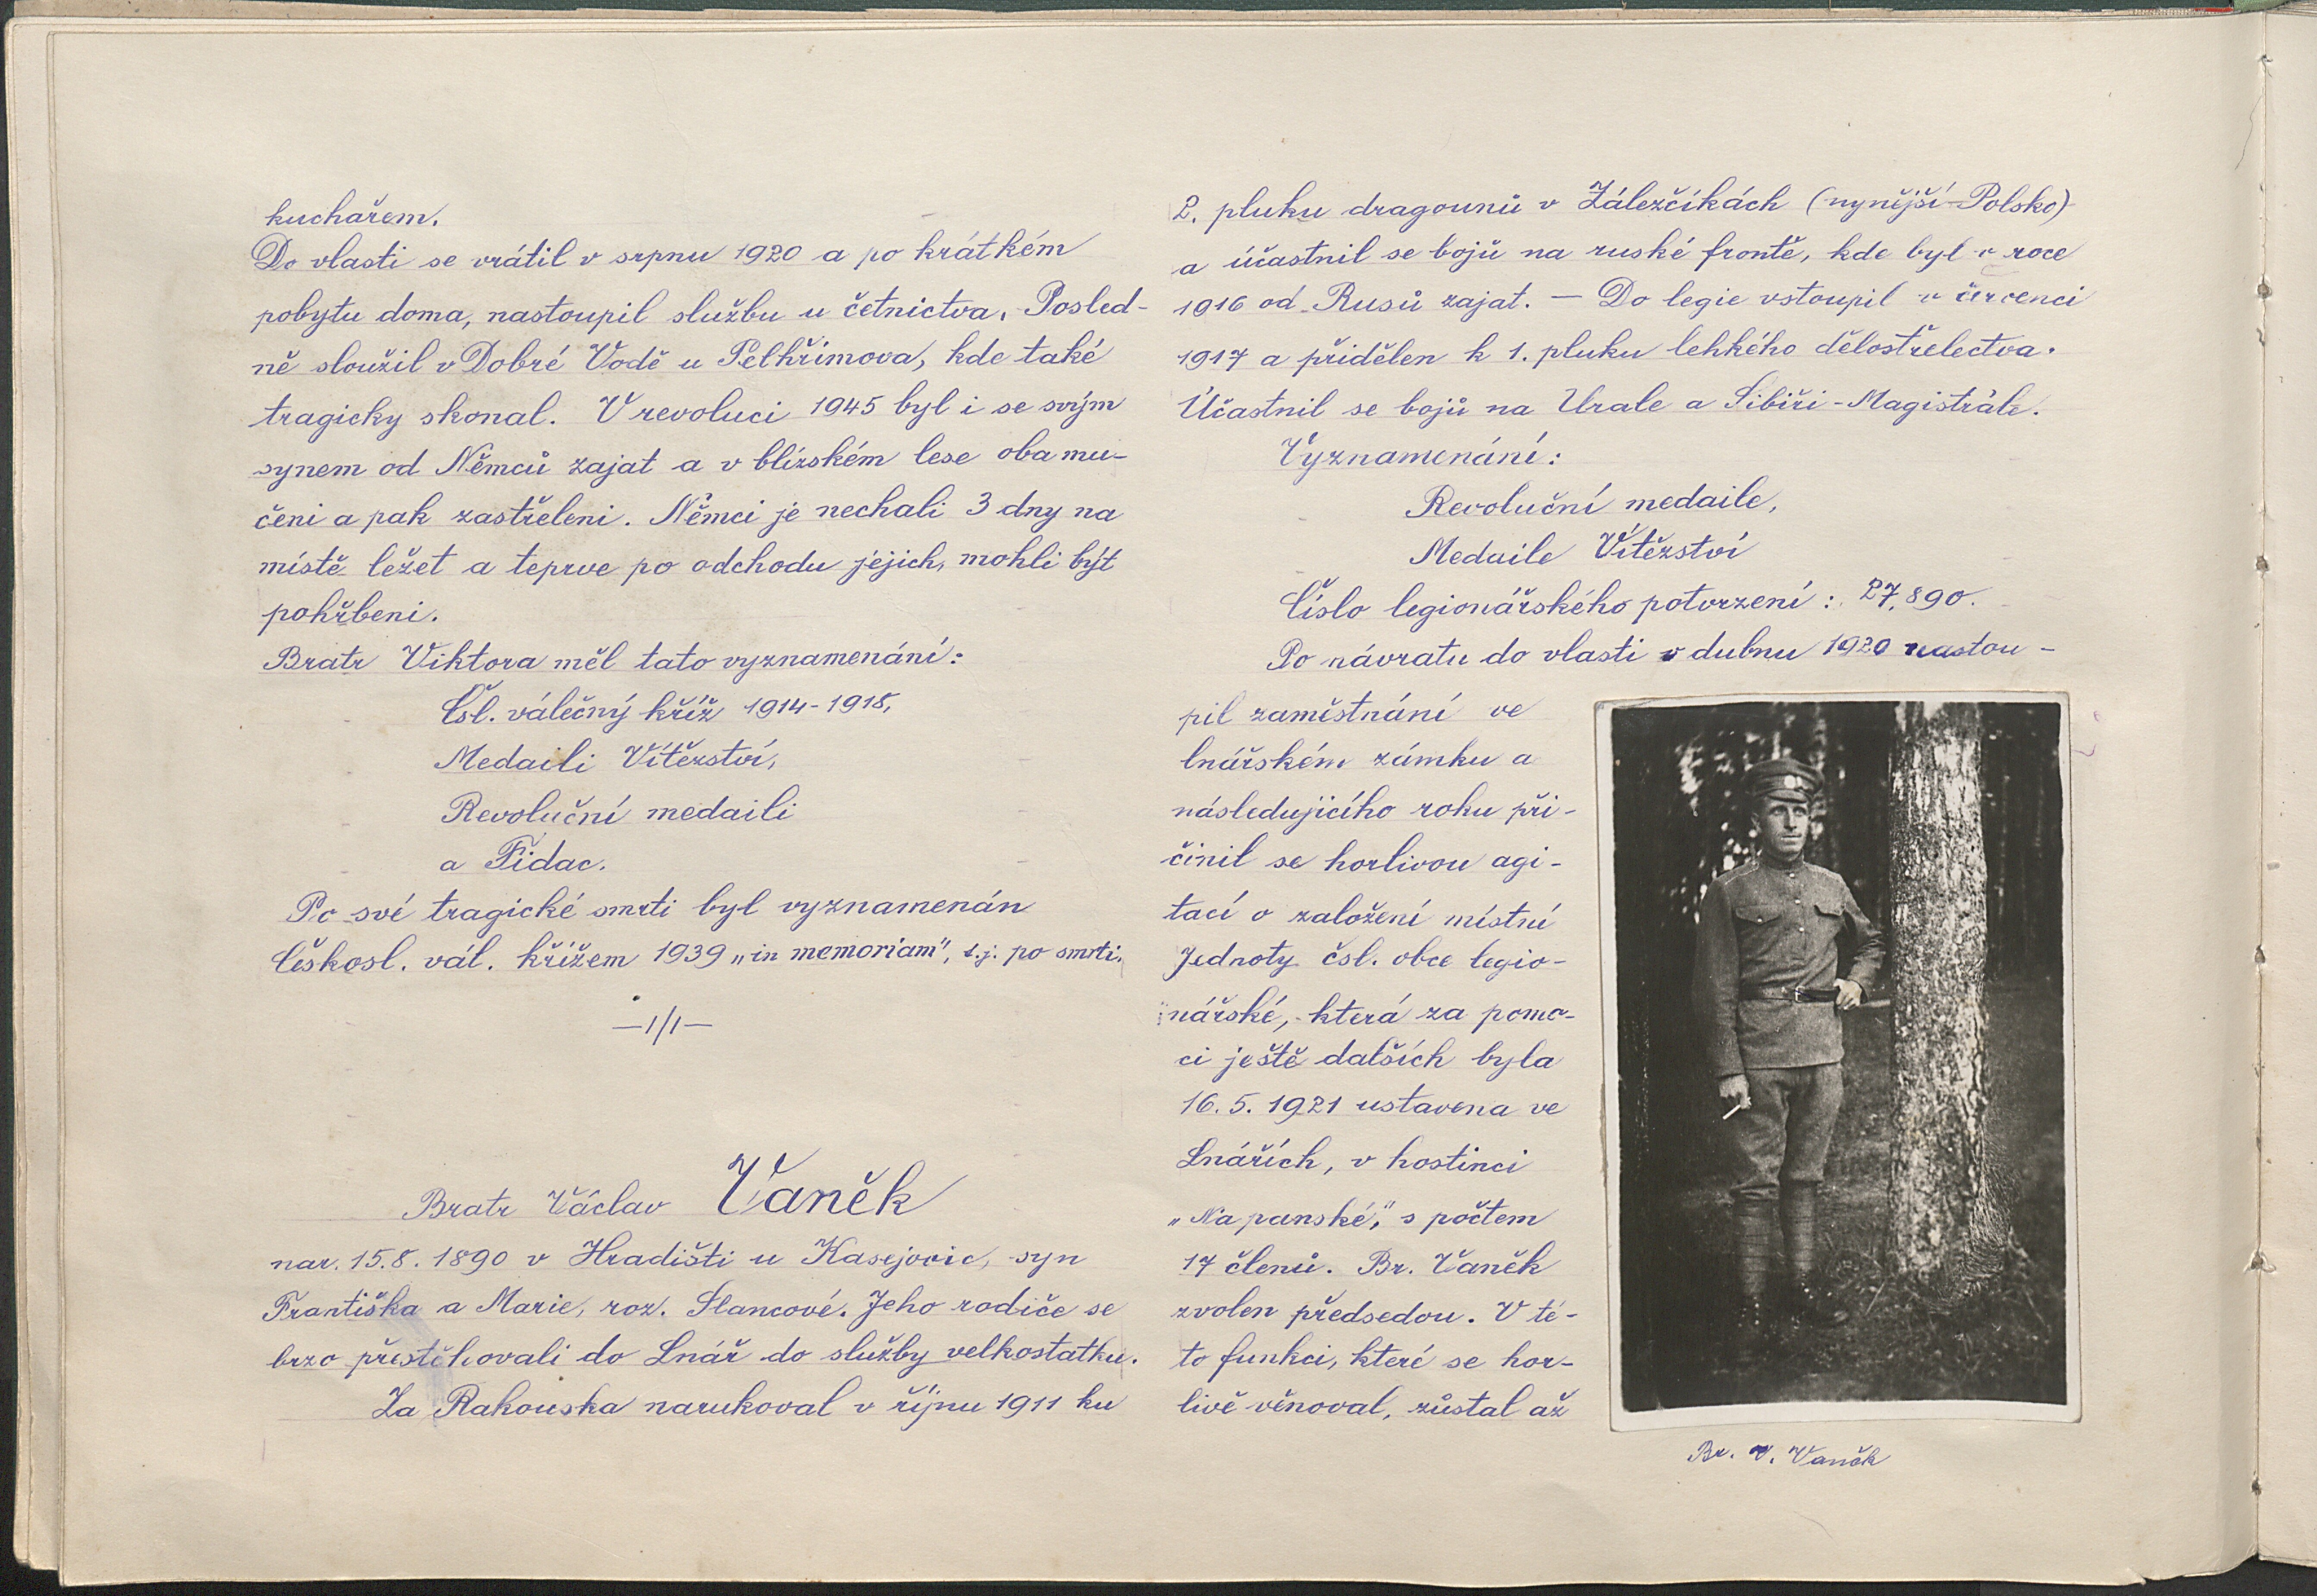 kuchařem.
Do vlasti se vrátil v srpnu 1920 a po krátkém
pobytu doma, nastoupil službu u četnictva. Posled-
ně sloužil v Dobré Vodě u Pelhřimova, kde také
tragicky skonal. V revoluci 1945 byl i se svým
synem od Němců zajat a v blízském lese oba mu-
čeni a pak zastřeleni. Němci je nechali 3 dny na
místě ležet a teprve po odchodu jejich, mohli být
pohřbeni.
Bratr Viktora měl tato vyznamenání:
Čsl. válečný kříž 1914-1918,
Medaili Vítězství,
Revoluční medaili
a Fidac.
Po své tragické smrti byl vyznamenán
Českosl. vál. křížem 1939 „in memoriam", t.j. po smrti.
—1/1—
Bratr Václav Vaněk
nar. 15.8. 1890 v Hradišti u Kasejovic, syn
Františka a Marie, roz. Slancové. Jeho rodiče se
brzo přestěhovali do Lnář do služby velkostatku.
Za Rakouska narukoval v říjnu 1911 ku
2. pluku dragounů v Zálezčíkách (nynější Polsko)
a účastnil se bojů na ruské frontě, kde byl v roce
1916 od Rusů zajat. — Do legie vstoupil v červenci
1917 a přidělen k 1. pluku lehkého dělostřelectva.
Účastnil se bojů na Urale a Sibiři - Magistrále.
Vyznamenání:
Revoluční medaile,
Medaile Vítězství
Číslo legionářského potvrzení: 27.890.
Po návratu do vlasti v dubnu 1920 nastou-
pil zaměstnání ve
lnářském zámku a
následujícího roku při-
činil se horlivou agi-
tací o založení místní
Jednoty čsl. obce legio-
nářské, která za pomo-
ci ještě dalších byla
16. 5. 1921 ustavena ve
Lnářích, v hostinci
„Na panské," s počtem
17 členů. Br. Vaněk
zvolen předsedou. V té-
to funkci, které se hor-
livě věnoval, zůstal až
Br. V. Vaněk